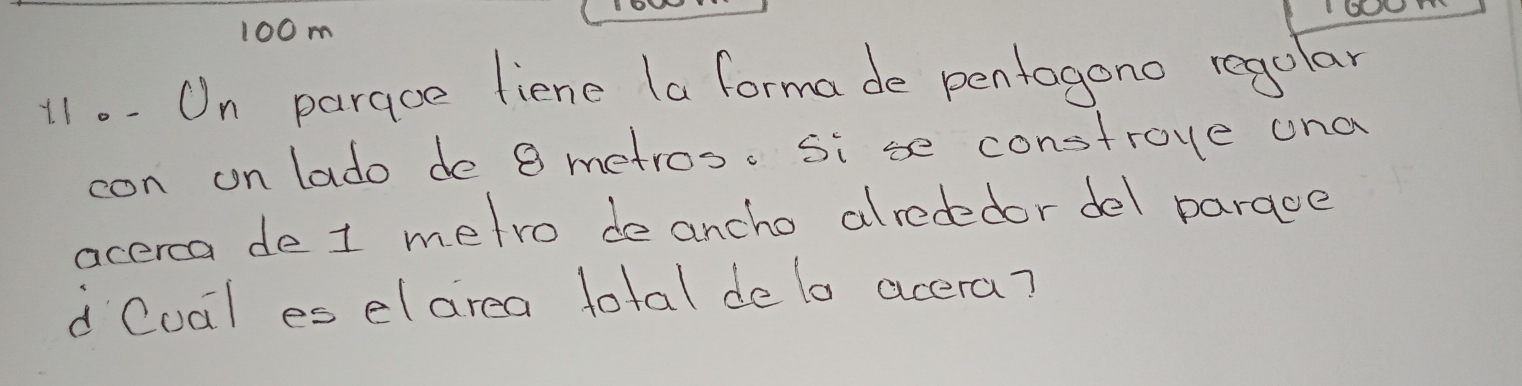 100 m
11.- Un parque tiene la forma de pentagono regular
con un lado de 8 metros. Si se construye una
acerca de 1 metro de ancho alrededor del parque
¿Cuál es el área total de la acera?